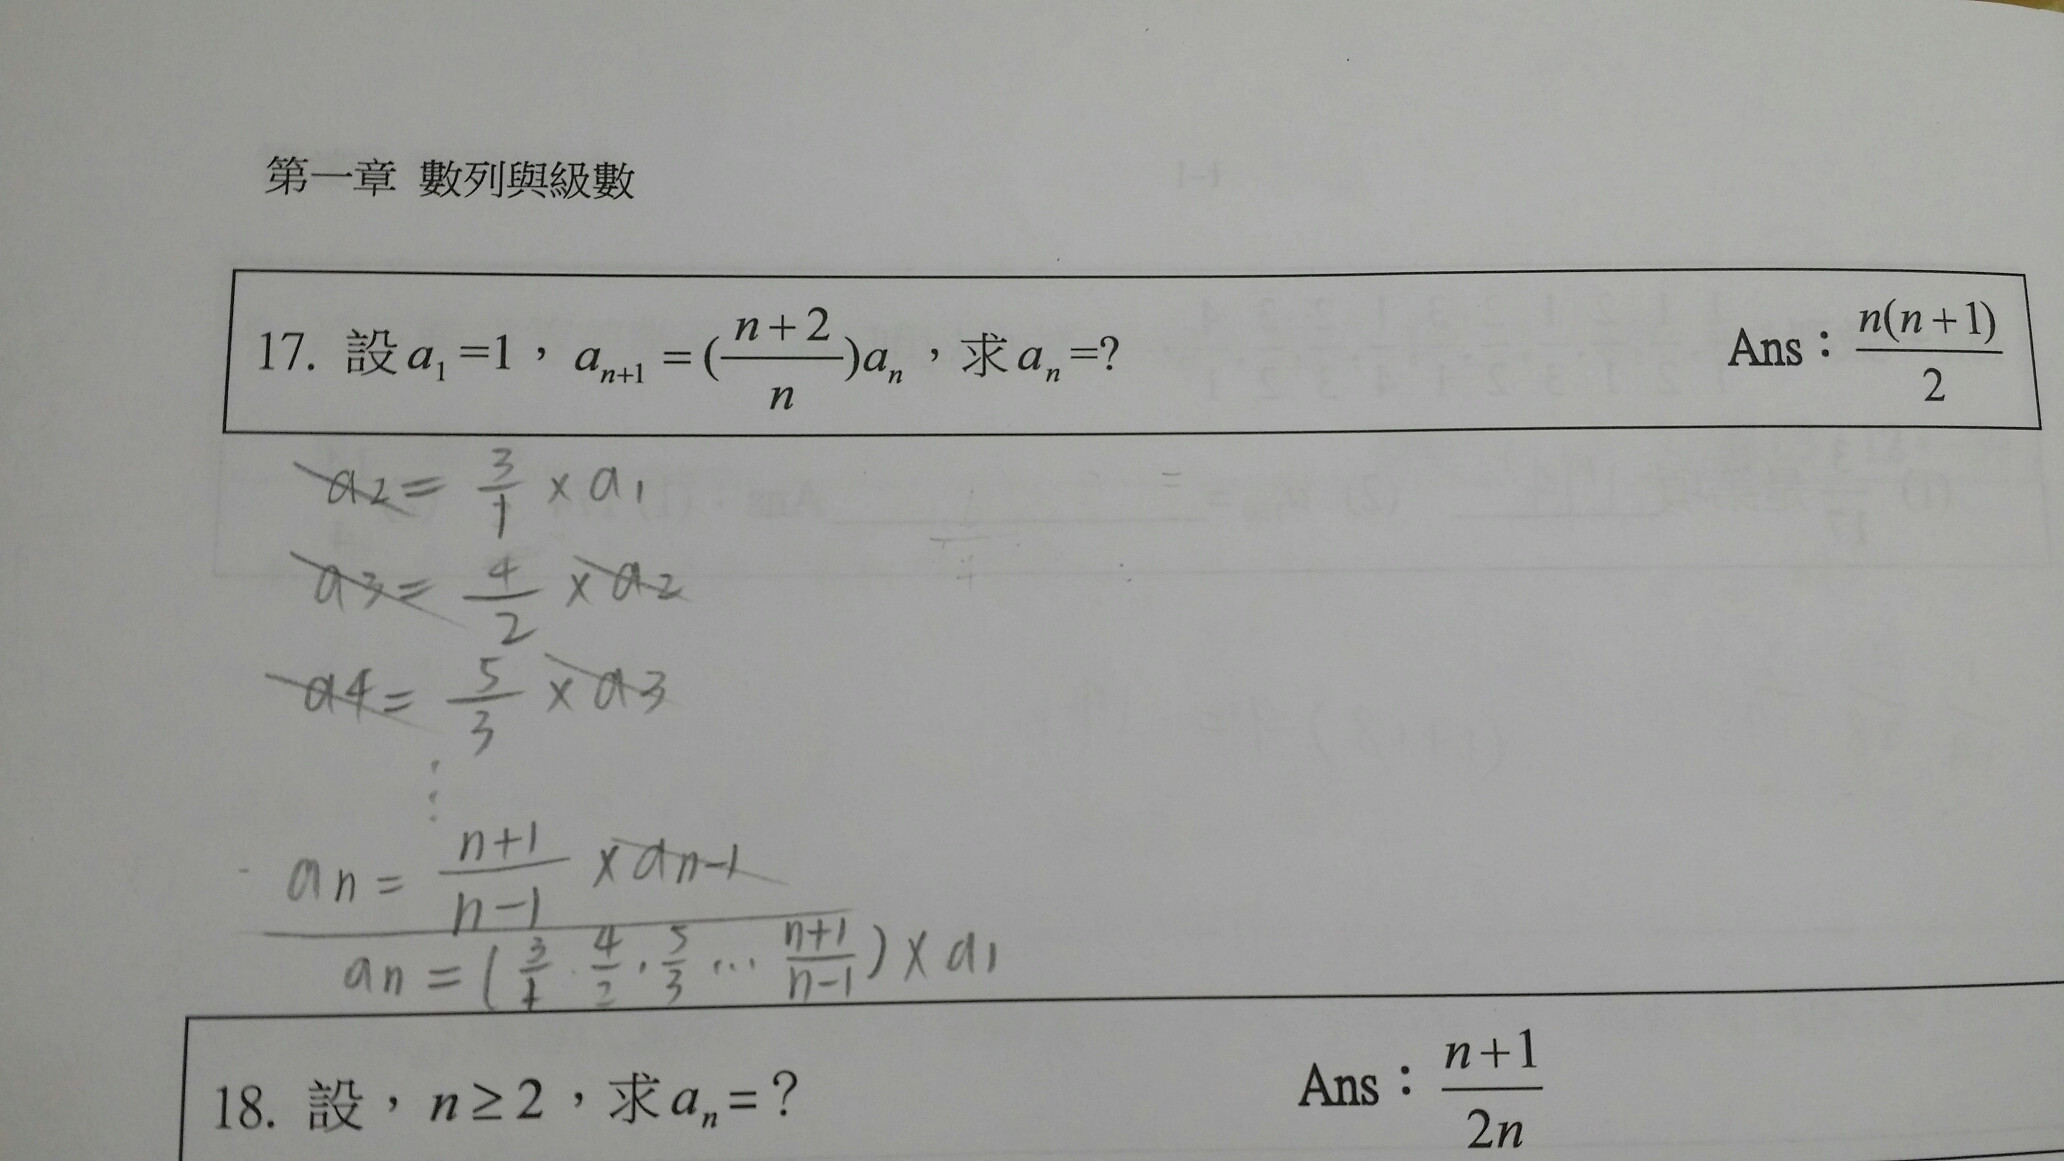 第一章 數列與級數
17. 設 a₁=1，aₙ₊₁=(n+2/n)aₙ，求 aₙ=? Ans：n(n+1)/2
a2 = 3/1 × a1
a3 = 4/2 × a2
a4 = 5/3 × a3
⋮
an = n+1/n-1 × an-1
an = (3/1 · 4/2 · 5/3 ... n+1/n-1) × a1
18. 設，n≥2，求 aₙ=? Ans：n+1/2n